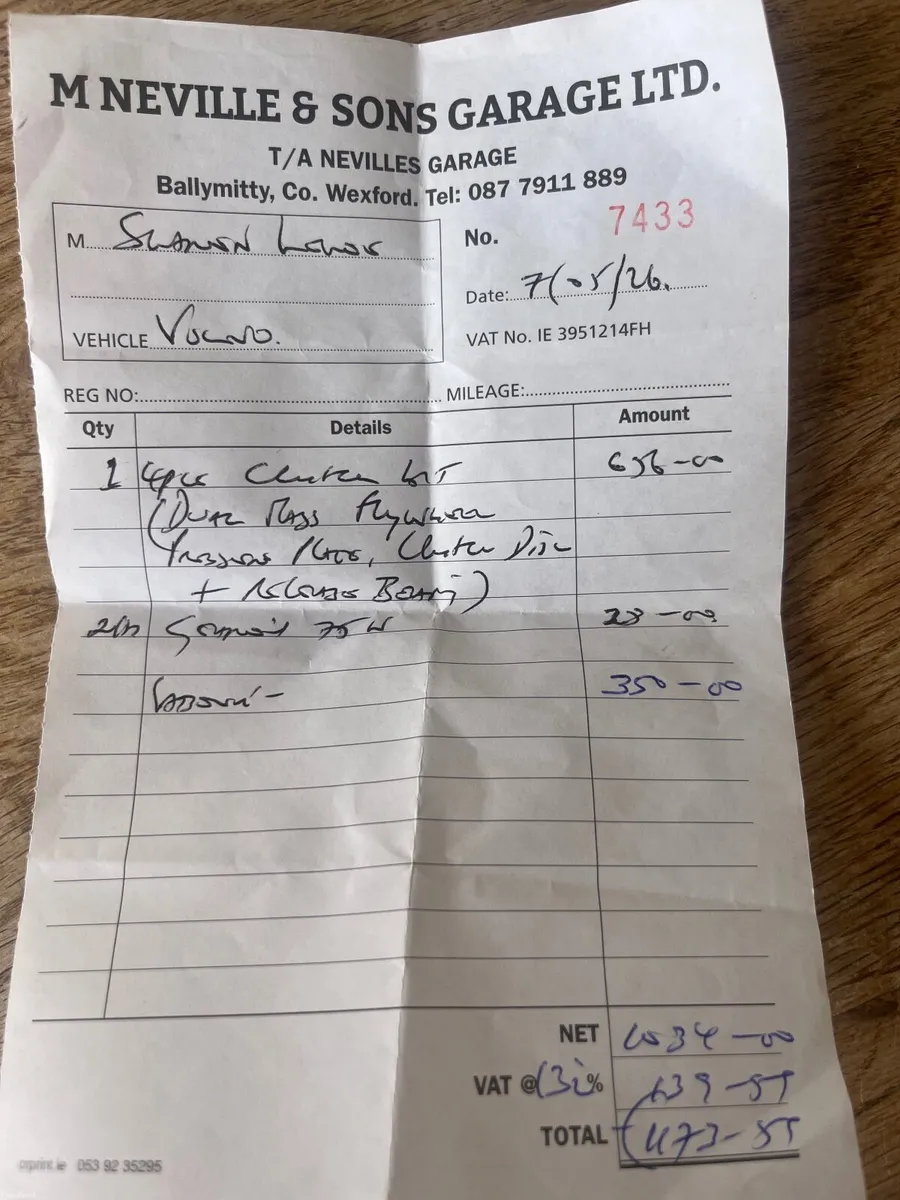 M NEVILLE & SONS GARAGE LTD.
T/A NEVILLES GARAGE
Ballymitty, Co. Wexford. Tel: 087 7911 889
M
No. 7433
Date: 7/05/26.
VEHICLE Volvo.
VAT No. IE 3951214FH
REG NO: MILEAGE:
Qty Details Amount
1 4pce Clutch Kit 656-00
(Dual Mass Flywheel
Pressure Plate, Clutch Disc
+ Release Bearing)
75W 28-00
Labour - 350-00
NET 1034-00
VAT @ 13½% 139-59
TOTAL 1173-59
orprint.ie 053 92 35295